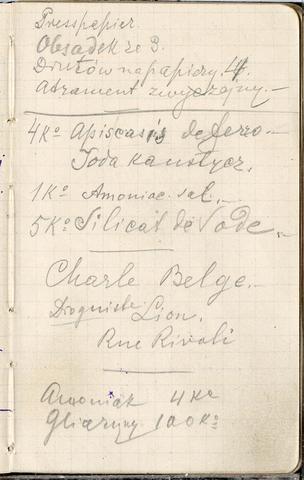 Presspapier
Obsadek ze 3.
Drutów na papiery. 4.
Atrament zwyczajny.—
4 Ko Apiscasis de ferro—
Soda kaustycz.
1 Ko Amoniac. sal.—
5 Ko Silicat de Sode.—
Charle Belge.—
Droguiste Lion.
Rue Rivoli
Amoniak 4 Ko
Gliceryny 100 Ko